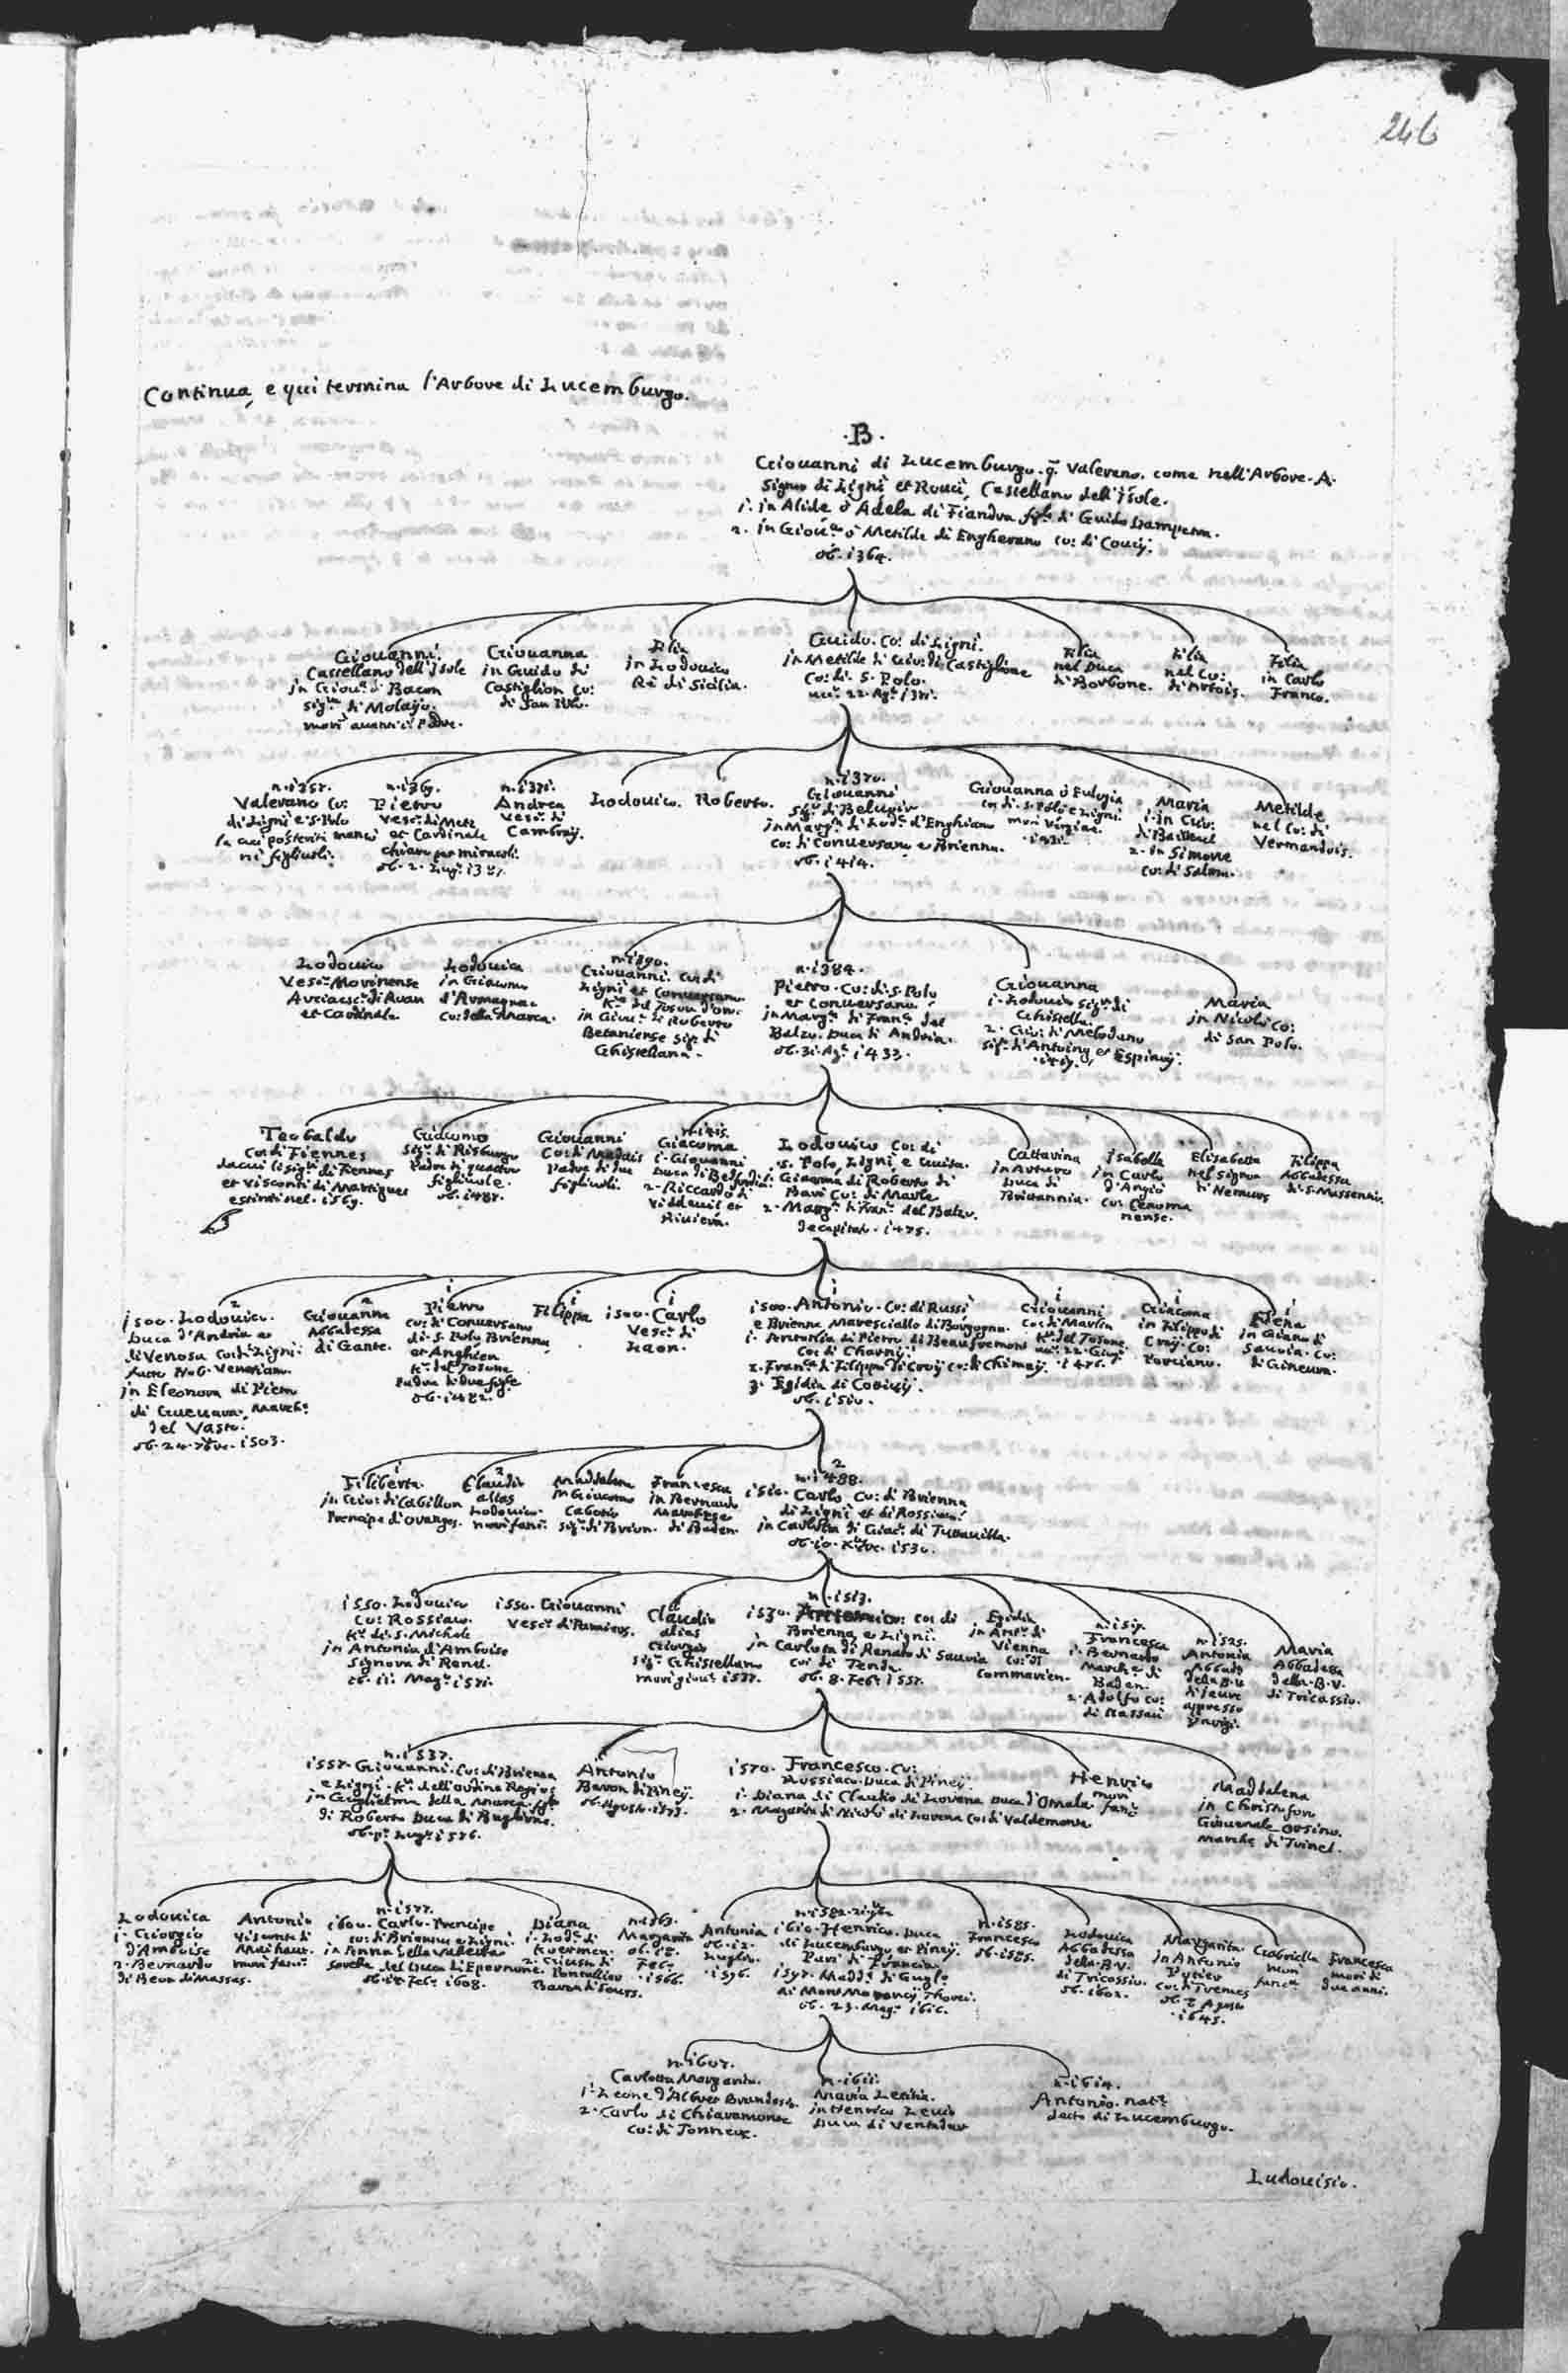 246
Continua, e qui termina l'Arbore di Lucemburgo.
.B.
Giovanni di Lucemburgo. q. Valerano. come nell'Arbore. A.
Signor di Ligni et Rouci, Castellano dell'Isole.
1. in Alide ò Adela di Fiandra figla di Guido Dampetra.
2. in Giouna ò Metilde di Engherano co: di Couci.
ob. 1364.
Giovanni.
Castellano dell'Isole
in Giouna di Bacon
sigra di Molayo.
morì avanti il Padre.
Giouanna
in Guido di
Castiglion Co:
di San Polo.
Filia
in Lodovico
Rè di Sicilia.
Guido. Co: di Ligni.
in Metilde di Giov: di Castiglione
Co: di. S. Polo.
22. Ago 1371.
Filia
nel Duca
di Borbone.
Filia
nel Co:
di Artois.
Filia
in Carlo
Franco.
Valerano Co:
di Ligni e S. Polo
la cui posterità mancò
figliuoli.
n. 1369.
Pietro
Vesco: di Metz
et Cardinale
chiaro per miracoli.
ob. 2. Lugo 1387.
Andrea
Vesco: di
Cambray.
Lodouico.
Roberto.
n. 1370.
Giouanni
Sigr di Belugir
in Marga di Lodo d'Enghiano
Co: di Conversano e Brienna.
ob. 1414.
Giouanna ò Eulogia
co: di. S. Polo e Ligni.
morì Vergine.
Maria
1. in Gio:
di Bailleul
2. in Simone
co: di Salem.
Metilde
nel Co: di
Vermandois.
Lodouico
Vesco Morinense
Arciuesco: di Roan
et Cardinale.
Lodouica
in Giacomo
d'Armagnac
Co: della Marca.
n. 1390.
Giouanni. Co: di
Ligni et Conversano
Kr del Toson d'oro.
in Giouna di Roberto
Betaniense sigr di
Ghistellana.
n. 1384.
Pietro. Co: di S. Polo
et Conversano.
in Marga di Franco del
Balzo. Duca di Andria.
ob. 31. Ago 1433.
Giouanna
1. Lodouico sigr di
Ghistella.
2. Gio: di Melodano
sigr d'Antoing et Espinoy.
Maria
in Nicolò Co:
di San Polo.
Teobaldo
Co: di Fiennes
da cui li sigri di Fiennes
et Visconti di Martigues
estinti nel. 1569.
Giacomo
Sigr: di Risburgo
Padre di quattro
figliuole.
ob. 1487.
Giouanni
Co: di
Padre di due
figliuoli.
Giacoma
1. Giouanni
Duca di Bedfordia.
2. Riccardo di
Viddeuil et
Riuiera.
Lodouico Co: di
S. Polo, Ligni e Guisa.
1. Giouanna di Roberto di
Bari Co: di Marle
2. Marga di Franco del Balzo.
decapitato. 1475.
Cattarina
in Arturo
Duca di
Britannia.
Isabella
in Carlo
d'Angiò
co: Cenoma
nense.
Elisabetta
nel signor
di Nemurs
Filippa
Abbadessa
di S. Massentio.
1500. Lodouico.
Duca d'Andria e
di Venosa Co: di Ligni.
fatto N. b. Venetiano.
in Eleonora di Pietro
di Gueuara, Marche
del Vasto.
ob. 24. 1503.
Giouanna
Abbadessa
di Gante.
Pietro
co: di Conversano
di S. Polo, Brienna
et Anghien
Kr del Tosone
Padre di due figle
ob. 1482.
Filippa
1500. Carlo
Vesco: di
Laon.
1500. Antonio. Co: di Russi
e Brienna Maresciallo di Borgogna.
1. Antonia di Pietro di Beaufremont
Co: di Charni.
2. Franca di Filippo di Croy co: di Chimay.
3. Egidia di Couicij.
ob. 1510.
Giouanni
co: di Marlia
Kr del Tosone.
22. Giugo
1476.
Giacoma
in Filippo di
Croy. Co:
Porciano.
Elena
in Giano di
Sauoia. Co:
di Gineura.
Filiberta
in Gio: di Cabillon
Prencipe d'Oranges.
Claudio
alias
Lodouico.
morì fanco.
Maddalena
in Giacomo
Caboto
sigr: di Brion.
Francesca
in Bernardo
Marchese
di Baden.
n. 1488.
1510. Carlo Co: di Brienna
di Ligni et di Rossiaco.
in Carlotta di Giaco: di Tuttauilla.
ob. 10. Xbre. 1530.
1550. Lodouico
Co: Rossiaco.
Kr: di S. Michele
in Antonia d'Amboise
Signora di Renel.
ob. 11. Mago 1571.
1550. Giouanni
Vesco: di Pamiers.
Claudio
alias
Giorgio
sigr: Ghistellano
morì giou: 1537.
n. 1513.
1530. Antonio: co: di
Brienna, e Ligni.
in Carlotta di Renato di Sauoia
co: di Tenda.
ob. 8. Febo 1557.
Egidia
in Anto: di
Vienna
co: di
Commarien.
Francesca
1. Bernardo
Marche di
Baden.
2. Adolfo co:
di Nassau
n. 1525.
Antonia
Abbadsa
della B. V.
di Jouare
appresso
Parigi.
Maria
Abbadessa
della. B. V.
di Tricassio.
n. 1537.
1557. Giouanni. Co: di Brienna
e Ligni. Kr: dell'ordine Regio
in Guglielma della Marca figla
di Roberto Duca di Buglione.
ob. po Lugo 1576.
Antonio
Baron di Piney.
ob. Agosto. 1573.
1570. Francesco. Co:
Rossiaco. Duca di Piney.
1. Diana di Claudio di Lorena Duca d'Omala
2. Margarita di Nicolò di Lorena Co: di Valdemonte.
Henrico
morì
fanco
Maddalena
in Christofforo
Giouenale Orsino.
Marche di Trinel.
Lodouica
1. Giorgio
d'Amboise
2. Bernardo
di Beon di Massas.
Antonio
Visconte di
Machaut.
morì fanco.
n. 1577.
1600. Carlo. Prencipe
co: di Brienna e Ligni.
in Anna della Valletta
sorella del Duca di Epernone.
ob. Febo 1608.
Diana
1. Lodo: di
Kuermen.
2. Giusto di
Pontallier
Baron di
n. 1563.
Margarita
ob. 18.
Febo
1566.
Antonia
ob. 12.
Luglio.
1576.
n. 1582.
1610. Henrico. Duca
di Lucemburgo et Piney.
Pari di Francia
1597. Madda di Guglo
di Mont Morancy Thorei.
ob. 23. Mago 1616.
n. 1585.
Francesco
ob. 1585.
Lodouica
Abbadessa
della. B. V.
di Tricossio.
ob. 1602.
Margarita.
in Antonio
Potier
co: di Tremes
ob. 8 Agosto
1645.
Gabriella
morì
fanca
Francesca
morì di
due anni.
n. 1607.
Carlotta Margarita.
1. Leone d'Albret Brandes
2. Carlo di Chiaramonte
co: di Tonnerre.
n. 1611.
Maria Letitia.
in Henrico Leuis
Duca di Ventadur
n. 1614.
Antonio. natle
detto di Lucemburgo.
Ludouisio.